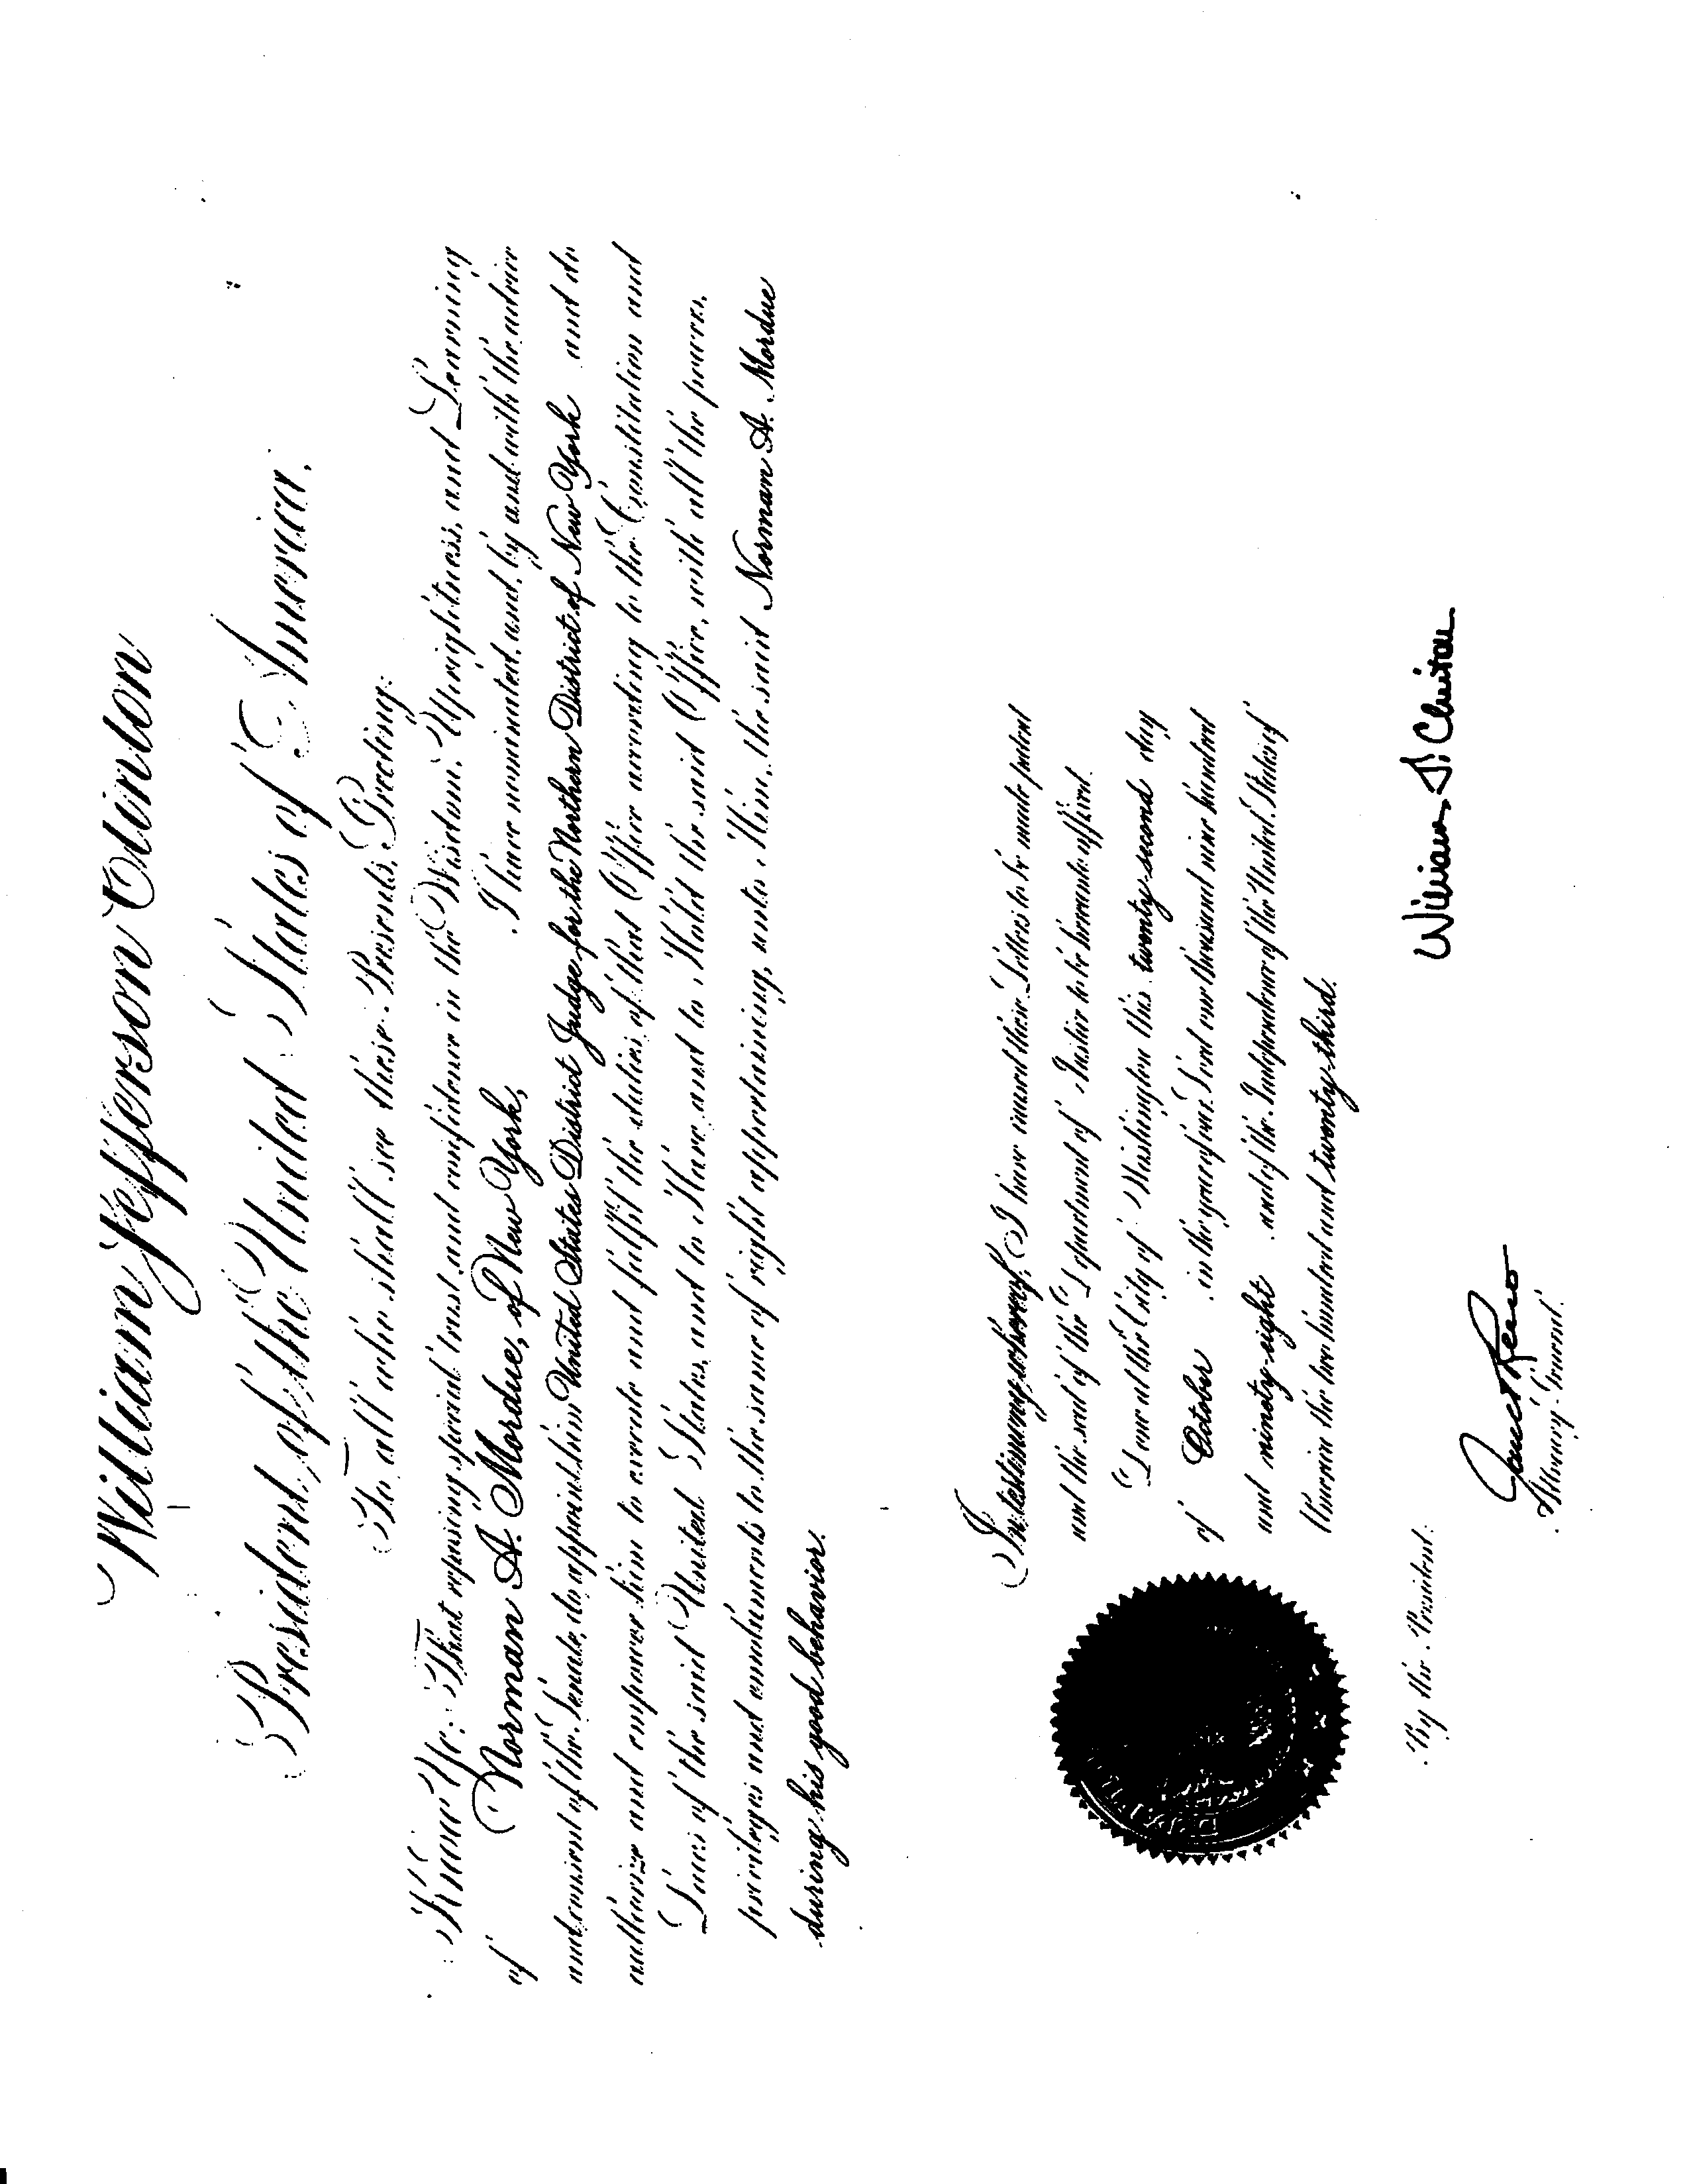 William Jefferson Clinton
President of the United States of America.
To all who shall see these Presents, Greeting:
Know Ye; That reposing special trust and confidence in the Wisdom, Uprightness, and Learning
of Norman A. Mordue, of New York, I have nominated, and, by and with the advice
and consent of the Senate, do appoint him United States District Judge for the Northern District of New York and do
authorize and empower him to execute and fulfil the duties of that Office according to the Constitution and
Laws of the said United States, and to Have and to Hold the said Office, with all the powers,
privileges and emoluments to the same of right appertaining, unto Him, the said Norman A. Mordue
during his good behavior.
In testimony whereof, I have caused these Letters to be made patent
and the seal of the Department of Justice to be hereunto affixed.
Done at the City of Washington this twenty-second day
of October in the year of our Lord one thousand nine hundred
and ninety-eight and of the Independence of the United States of
America the two hundred and twenty-third.
William J. Clinton
By the President:
Janet Reno
Attorney-General.